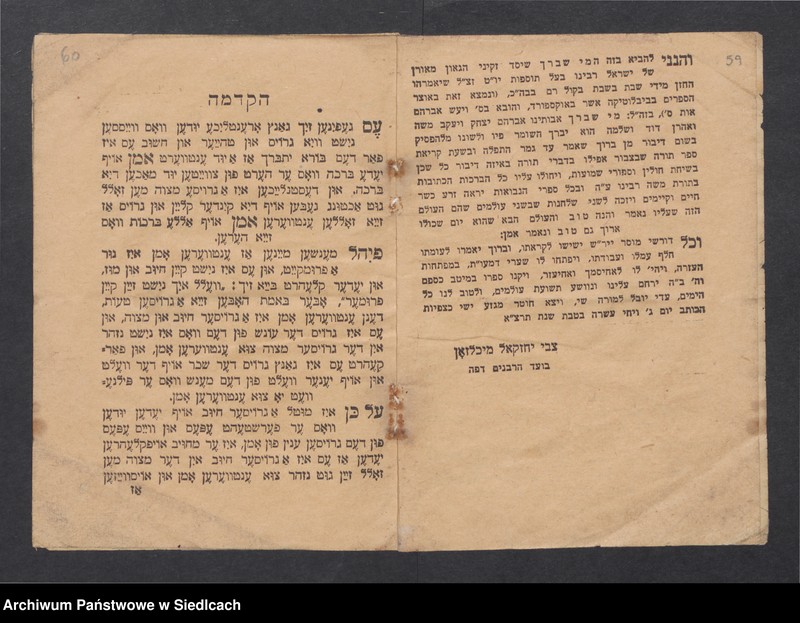 59
והנני להביא בזה המי שברך שיסד זקיני הגאון מאורן
של ישראל רבינו בעל תוספות יו״ט זצ״ל שיאמרהו
החזן מידי שבת בשבת בקול רם בבהכ״נ, (ונמצא זאת באוצר
הספרים בביבלוטיקה אשר באוקספורד, והובא בס׳ ויעש אברהם
אות ס׳), בזה״ל: מי שברך אבותינו אברהם יצחק ויעקב משה
ואהרן דוד ושלמה הוא יברך השומר פיו ולשונו מלהפסיק
בשום דיבור מן ברוך שאמר עד גמר התפלה ובשעת קריאת
ספר תורה שבצבור אפילו בדברי תורה באיזה דיבור כל שכן
בשיחת חולין וספורי שמועות, ויחולו עליו כל הברכות הכתובות
בתורת משה רבינו ע״ה ובכל ספרי הנבואות יראה זרע כשר
חיים וקיימים ויזכה לשני שלחנות שבשני עולמים שהם העולם
הזה שעליו נאמר והנה טוב והעולם הבא שהוא יום שכולו
ארוך גם טוב ונאמר אמן:
וכל דורשי מוסר ייר״ש ישישו לקראתו, וברוך יאמרו לעומתו
חלף עמלו ועבודתו, ויפתחו לו שערי דמעו״ת, במפתחות
העזרה, ויהי׳ לו לאחיסמך ואחיעזר, ויקנו ספרו במיטב כספם
וה׳ ב״ה ירחם עלינו ונוושע תשועת עולמים, ולטוב לנו כל
הימים, עדי יובל למורה שי, ויצא חוטר מגזע ישי כצפיות
הכותב יום ג׳ ויחי עשרה בטבת שנת תרצ״א
צבי יחזקאל מיכלזאן
בועד הרבנים דפה
60
הקדמה
עס געפינען זיך גאנץ ארענטליכע יודען וואס ווייסען
נישט וויא גרויס און טהייער און חשוב עס איז
פאר דעם בורא יתברך אז א יוד ענטווערט אמן אויף
יעדע ברכה וואס ער הערט פון צווייטען יוד מאכען דיא
ברכה, און דעסטגלייכען איז א גרויסע מצוה מען זאלל
גוט אכטונג געבען אויף דיא קינדער קליין און גרויס אז
זייא זאללען ענטווערען אמן אויף אללע ברכות וואס
זייא הערען.
פיהל מענשען מיינען אז ענטווערען אמן איז נור
א פרומקייט, און עס איז נישט קיין חיוב און מוז,
און יעדער קלעהרט בייא זיך: „וועלל איך נישט זיין קיין
פרומער״, אבער באמת האבען זייא א גרויסען טעות,
דענן ענטווערען אמן איז א גרויסער חיוב און מצוה, און
עס איז גרויס דער עונש פון דעם וואס איז נישט נזהר
אין דער גרויסער מצוה צוא ענטווערען אמן, און פאר=
קעהרט עס איז גאנץ גרויס דער שכר אויף דער וועלט
און אויף יענער וועלט פון דעם מענש וואס ער פילגע=
וועט יא צוא ענטווערען אמן.
על כן איז מוטל א גרויסער חיוב אויף יעדען יודען
וואס ער פערשטעהט עפעס און ווייס עפעס
פון דעם גרויסען ענין פון אמן, איז ער מחויב אויפקלעהרען
יעדען אז עס איז א גרויסער חיוב אין דער מצוה מען
זאלל זיין גוט נזהר צוא ענטווערען אמן און אויסווייזען
אז
Archiwum Państwowe w Siedlcach